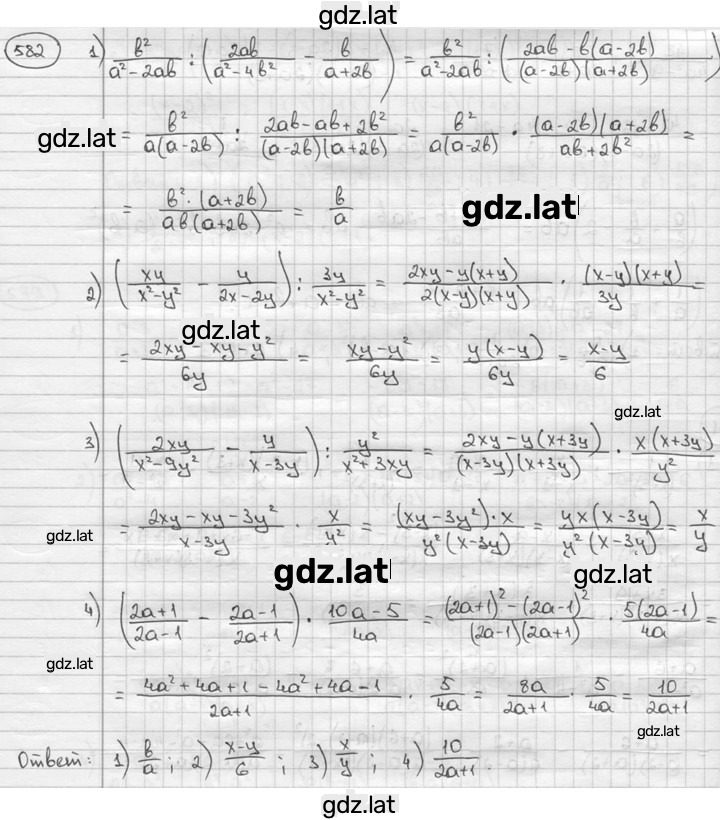 gdz.lat
582 1) b²/(a²-2ab) : (2ab/(a²-4b²) - b/(a+2b)) = b²/(a²-2ab) : ((2ab-b(a-2b))/((a-2b)(a+2b)))
gdz.lat = b²/(a(a-2b)) : (2ab-ab+2b²)/((a-2b)(a+2b)) = b²/(a(a-2b)) · ((a-2b)(a+2b))/(ab+2b²) =
= (b²·(a+2b))/(ab(a+2b)) = b/a gdz.lat
2) (xy/(x²-y²) - y/(2x-2y)) : 3y/(x²-y²) = (2xy-y(x+y))/(2(x-y)(x+y)) · ((x-y)(x+y))/3y =
gdz.lat
= (2xy-xy-y²)/6y = (xy-y²)/6y = (y(x-y))/6y = (x-y)/6
gdz.lat
3) (2xy/(x²-9y²) - y/(x-3y)) : y²/(x²+3xy) = (2xy-y(x+3y))/((x-3y)(x+3y)) · (x(x+3y))/y²
gdz.lat = (2xy-xy-3y²)/(x-3y) · x/y² = ((xy-3y²)·x)/(y²(x-3y)) = (yx(x-3y))/(y²(x-3y)) = x/y
gdz.lat gdz.lat
4) ((2a+1)/(2a-1) - (2a-1)/(2a+1)) · (10a-5)/4a = ((2a+1)²-(2a-1)²)/((2a-1)(2a+1)) · (5(2a-1))/4a =
gdz.lat
= (4a²+4a+1-4a²+4a-1)/(2a+1) · 5/4a = 8a/(2a+1) · 5/4a = 10/(2a+1)
gdz.lat
Ответ: 1) b/a; 2) (x-y)/6; 3) x/y; 4) 10/(2a+1).
gdz.lat